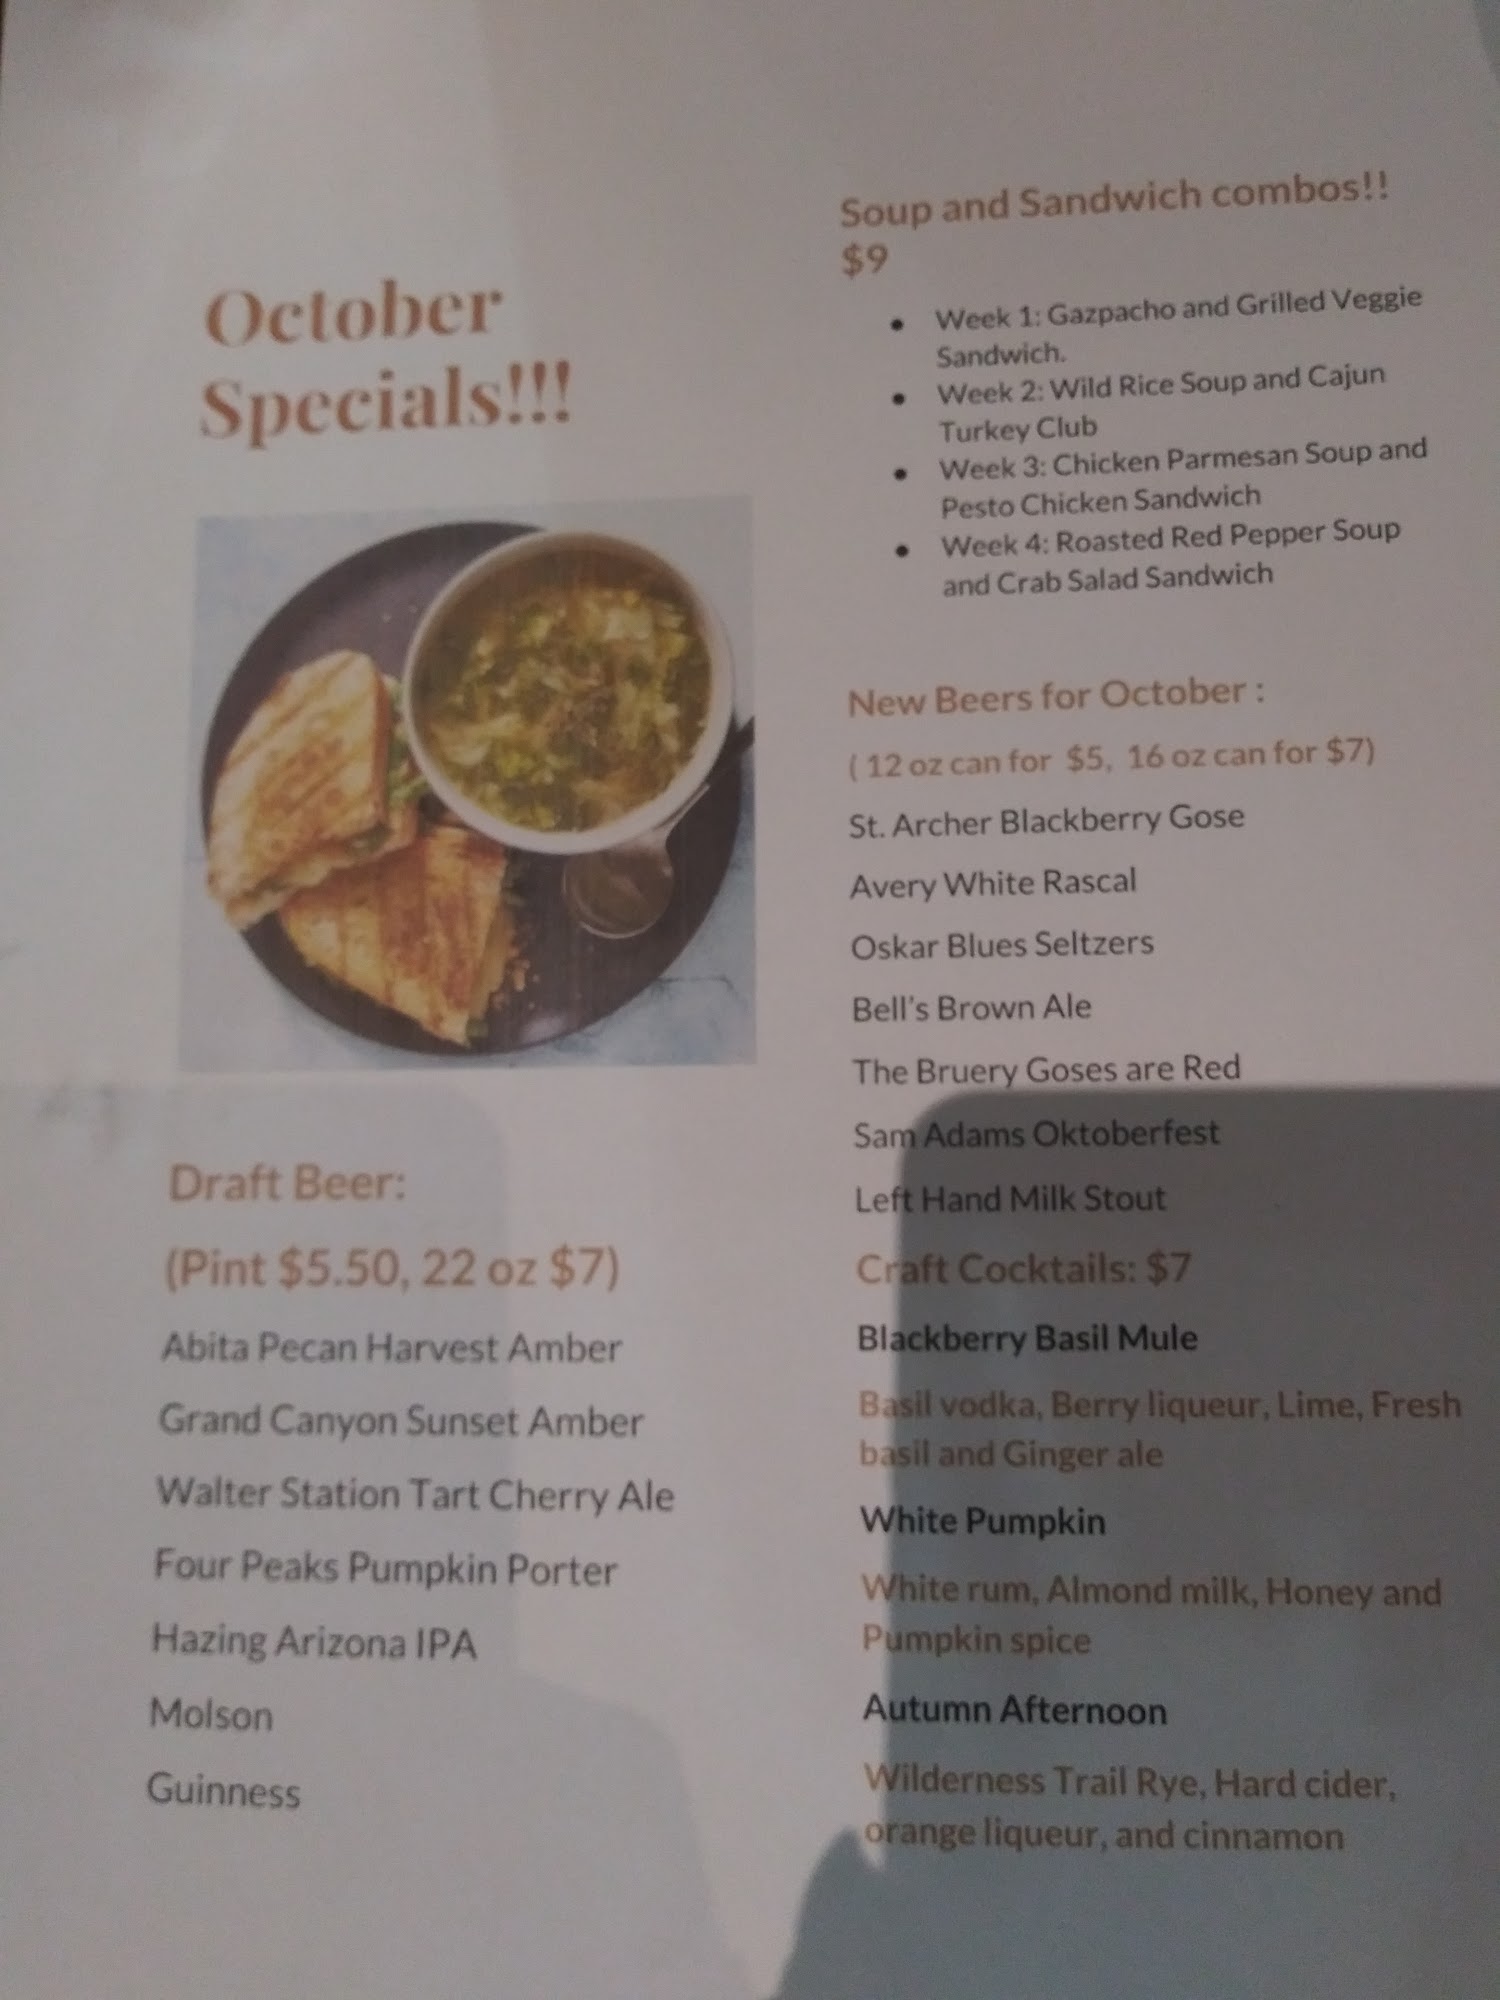 October
Specials!!!
Draft Beer:
(Pint $5.50, 22 oz $7)
Abita Pecan Harvest Amber
Grand Canyon Sunset Amber
Walter Station Tart Cherry Ale
Four Peaks Pumpkin Porter
Hazing Arizona IPA
Molson
Guinness
Soup and Sandwich combos!!
$9
• Week 1: Gazpacho and Grilled Veggie
Sandwich.
• Week 2: Wild Rice Soup and Cajun
Turkey Club
• Week 3: Chicken Parmesan Soup and
Pesto Chicken Sandwich
• Week 4: Roasted Red Pepper Soup
and Crab Salad Sandwich
New Beers for October :
( 12 oz can for $5, 16 oz can for $7)
St. Archer Blackberry Gose
Avery White Rascal
Oskar Blues Seltzers
Bell's Brown Ale
The Bruery Goses are Red
Sam Adams Oktoberfest
Left Hand Milk Stout
Craft Cocktails: $7
Blackberry Basil Mule
Basil vodka, Berry liqueur, Lime, Fresh
basil and Ginger ale
White Pumpkin
White rum, Almond milk, Honey and
Pumpkin spice
Autumn Afternoon
Wilderness Trail Rye, Hard cider,
orange liqueur, and cinnamon